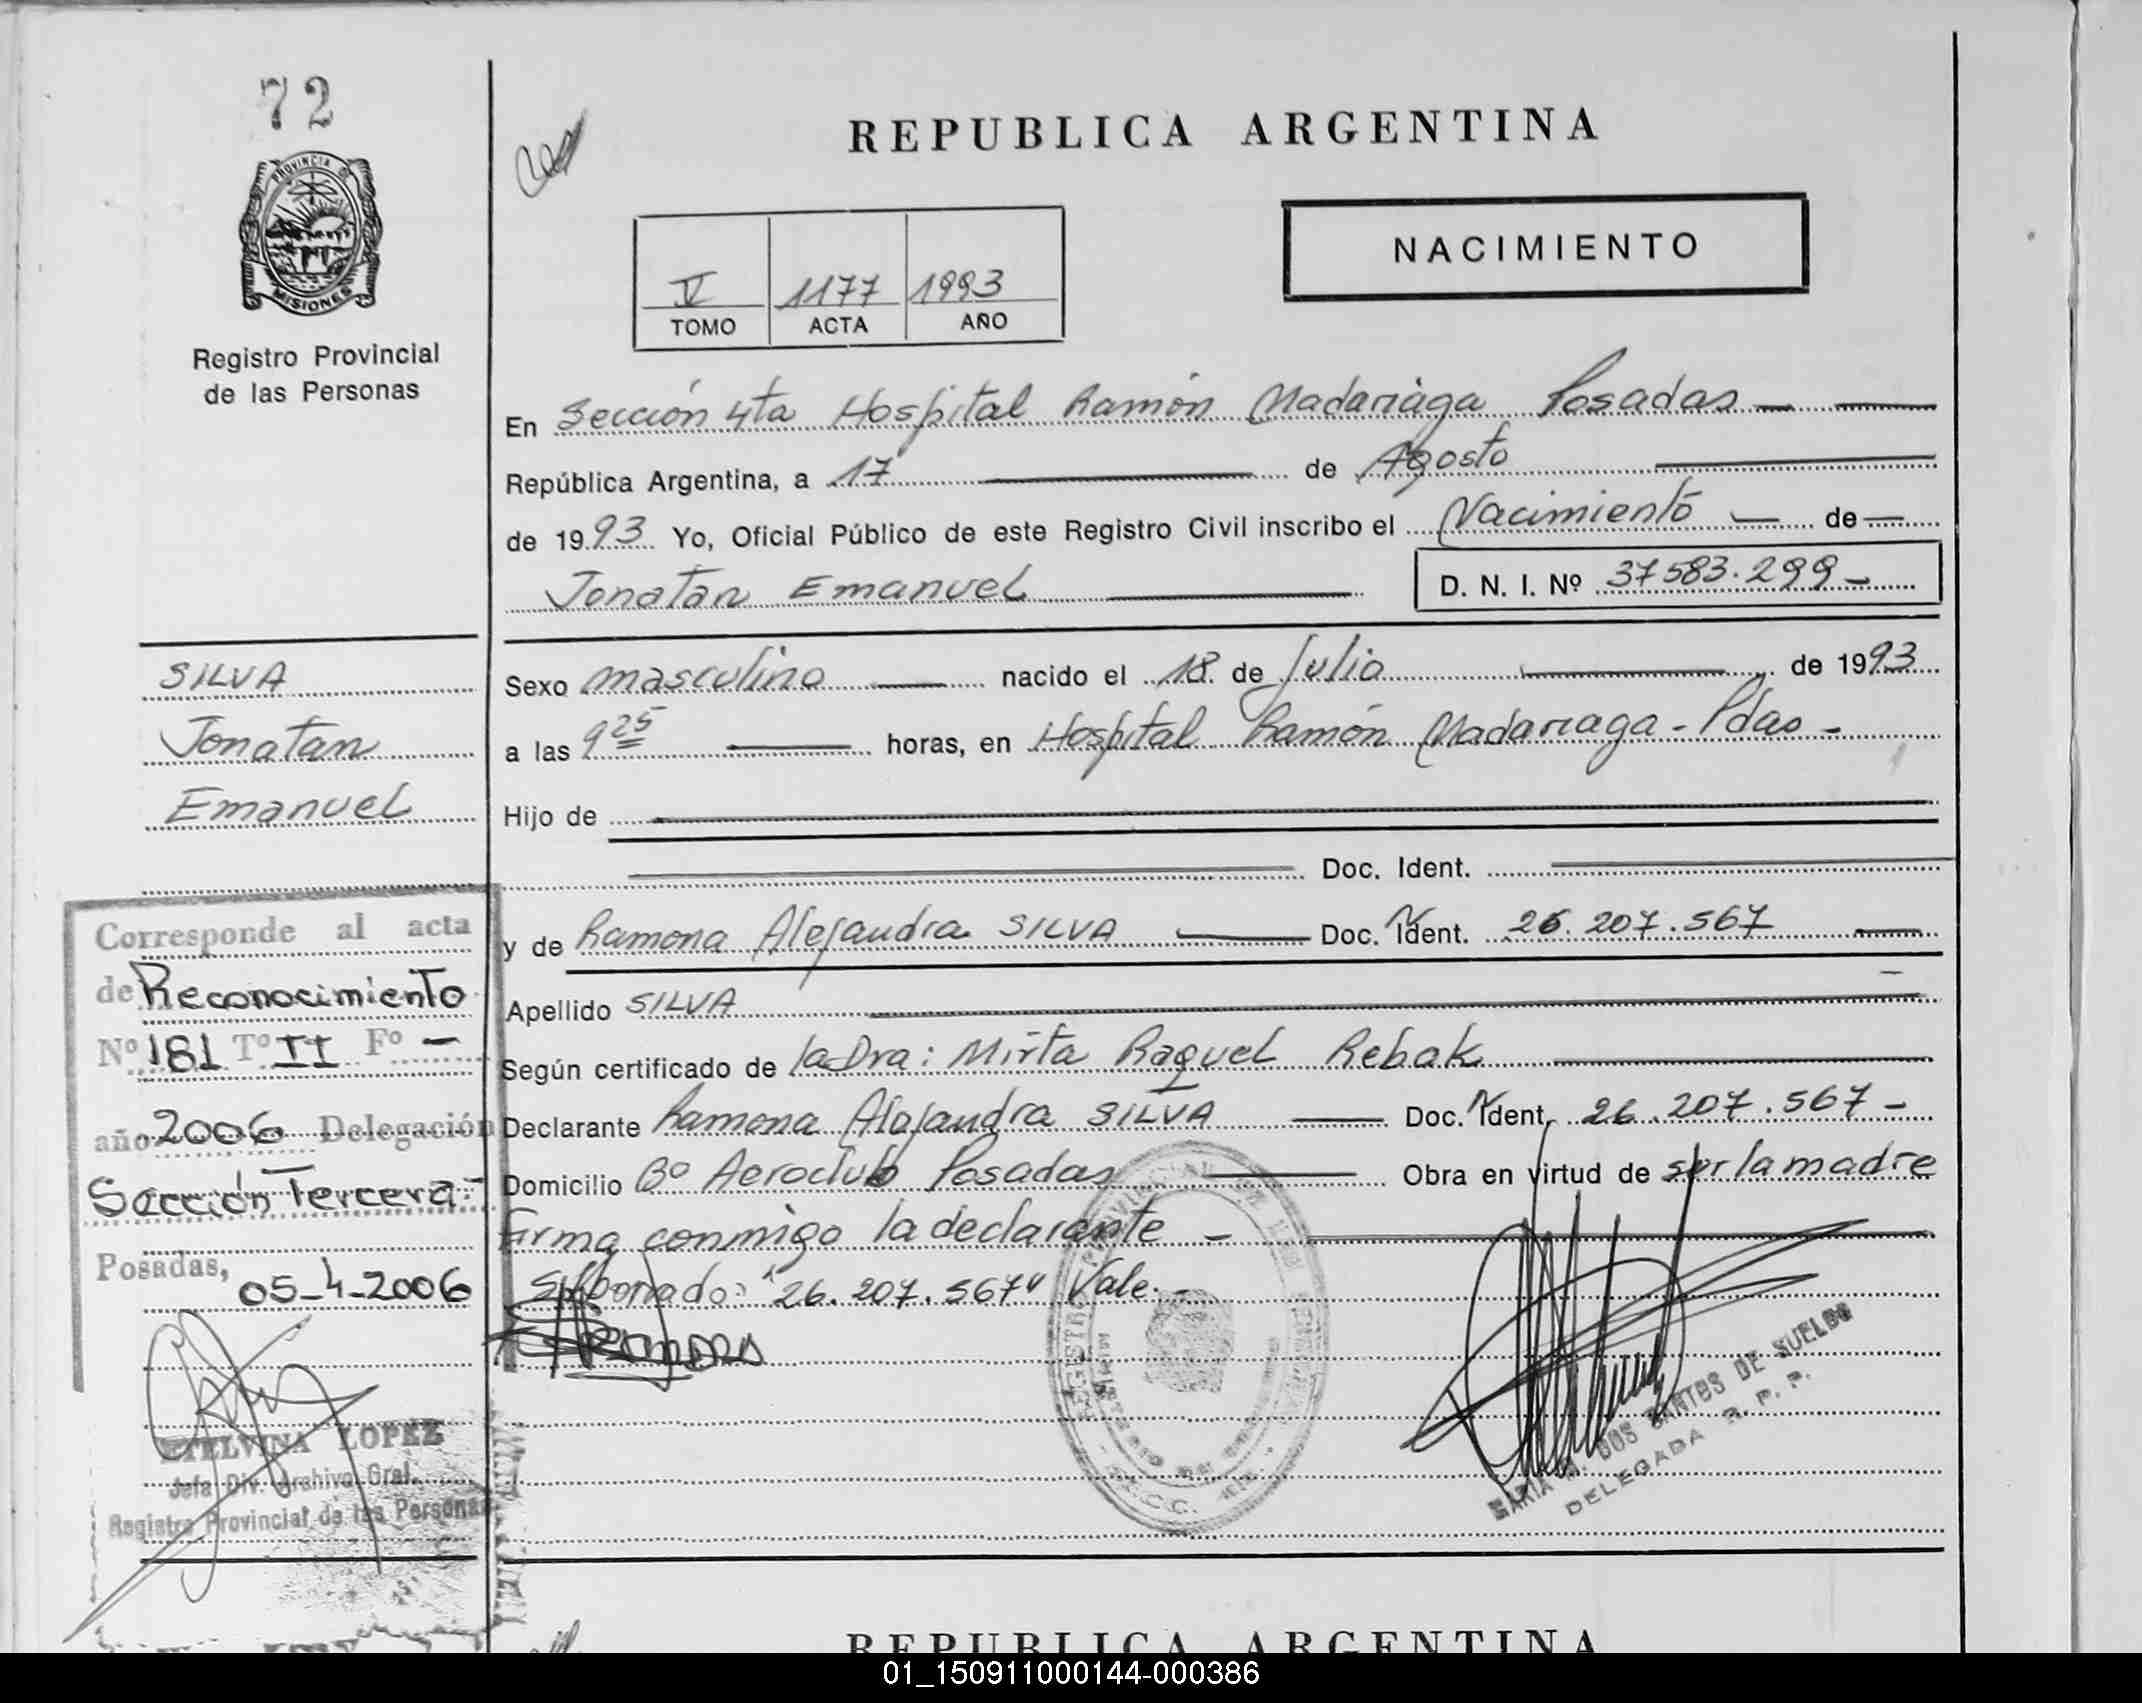 72
PROVINCIA DE
MISIONES
Registro Provincial
de las Personas
REPUBLICA ARGENTINA
NACIMIENTO
V 1177 1993
TOMO ACTA AÑO
En Sección 4ta Hospital Ramón Madariaga Posadas
República Argentina, a 17 de Agosto
de 1993 Yo, Oficial Público de este Registro Civil inscribo el Nacimiento de
Jonatan Emanuel D. N. I. Nº 37583.299
SILVA
Jonatan
Emanuel
Sexo masculino nacido el 18 de Julio de 1993
a las 9 25 horas, en Hospital Ramón Madariaga - Pdas -
Hijo de
Doc. Ident.
y de Ramona Alejandra SILVA Doc. Ident. 26.207.567
Apellido SILVA
Según certificado de la Dra: Mirta Raquel Rebak
Declarante Ramona Alejandra SILVA Doc. Ident. 26.207.567 -
Domicilio Bº Aeroclub Posadas Obra en virtud de ser la madre
Firma conmigo la declarante -
S/borrado: "26.207.567" Vale.-
Corresponde al acta
de Reconocimiento
Nº 181 Tº II Fº -
año 2006 Delegación
Sección Tercera.-
Posadas,
05-4-2006
ETELVINA LOPEZ
Jefa Div. Archivo Gral.
Registro Provincial de las Personas
MARIA M. DOS SANTOS DE SUELDO
DELEGADA R. P. P.
REPUBLICA ARGENTINA
01_150911000144-000386